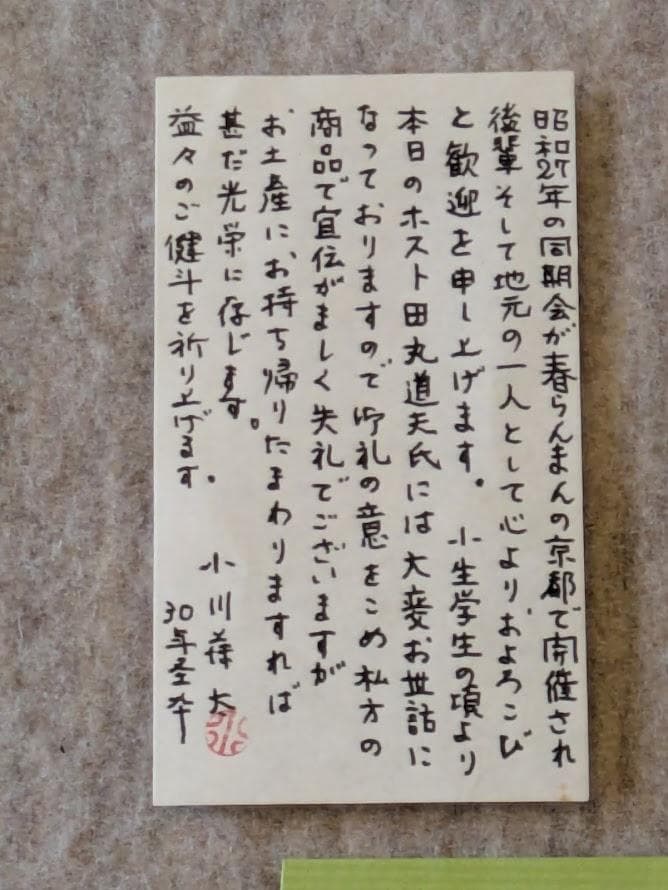 昭和27年の同期会が春らんまんの京都で開催され
後輩そして地元の一人として心よりおよろこび
と歓迎を申し上げます。 小生学生の頃より
本日のホスト田丸道夫氏には大変お世話に
なっておりますので御礼の意をこめ私方の
商品で宣伝がましく失礼でございますが
お土産にお持ち帰りたまわりますれば
甚だ光栄に存じます。
益々のご健斗を祈り上げます。
小川 大
30年卒